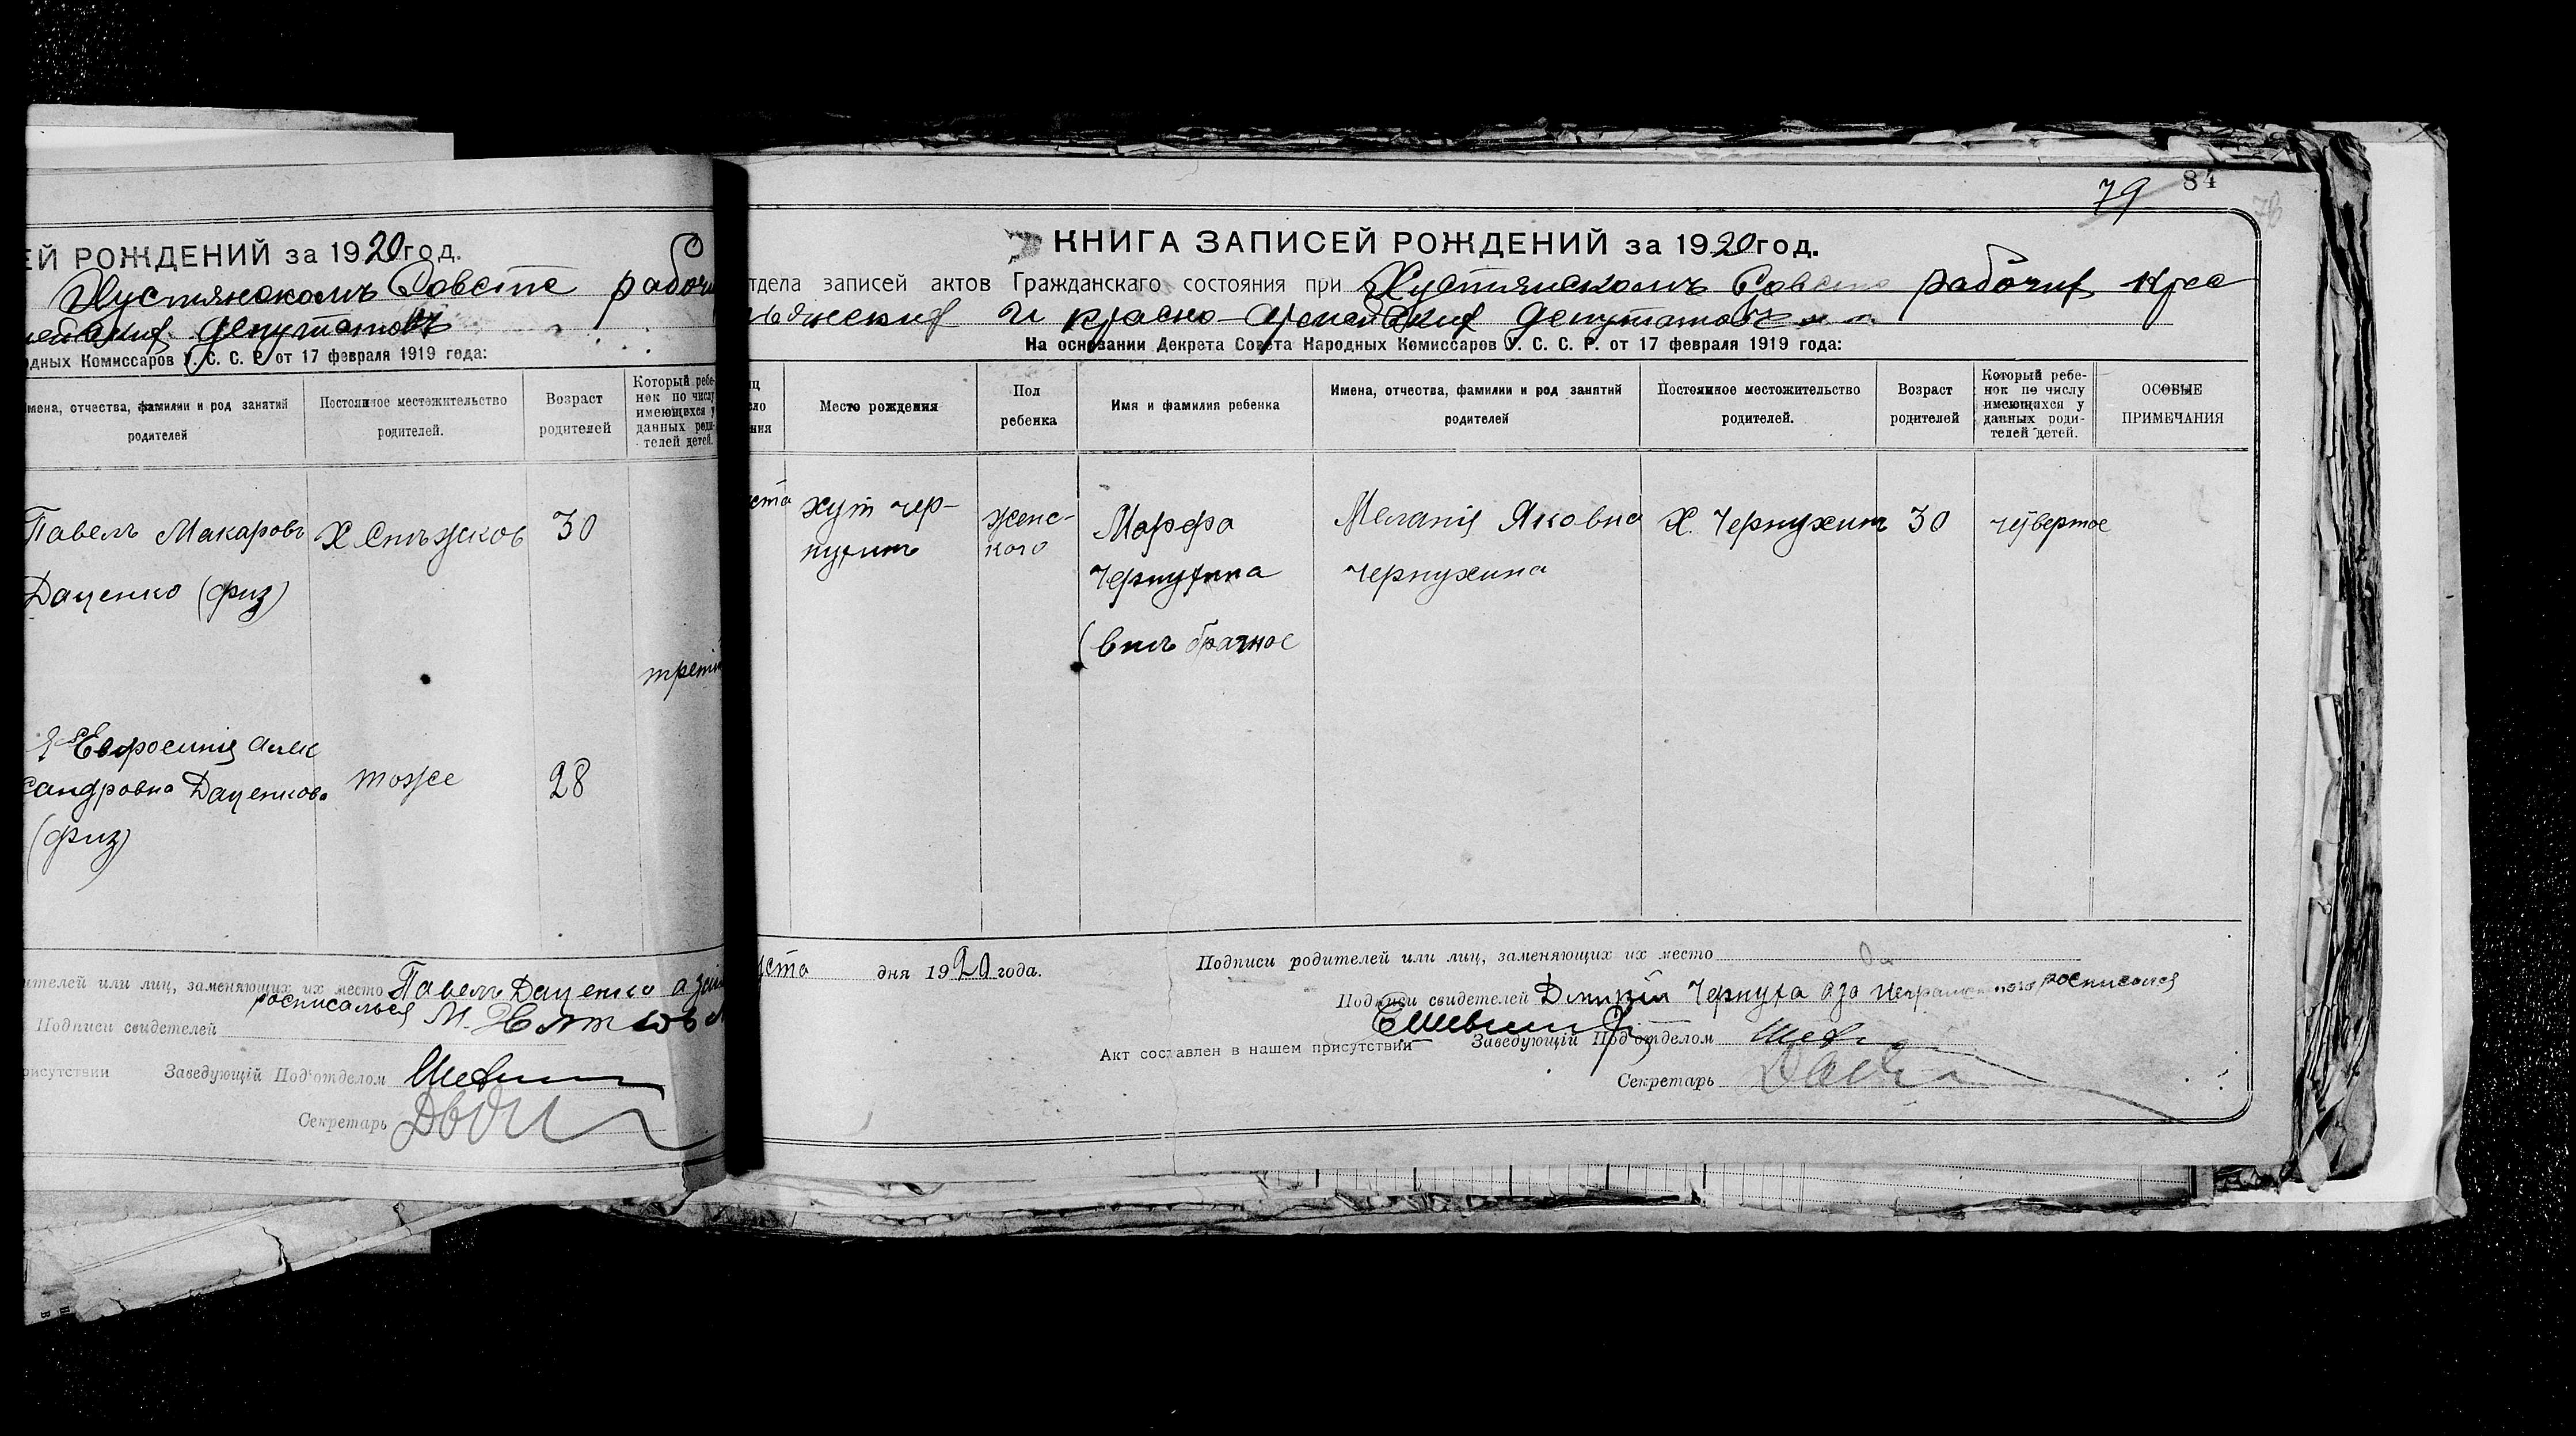 ЕЙ РОЖДЕНИЙ за 1920 год.
Хустянскомъ Совете рабочи
депутатовъ
одных Комиссаров У. С. С. Р. от 17 февраля 1919 года:
мена, отчества, фамилии и род занятий родителей
Постоянное местожительство родителей.
Возраст родителей
Который ребе-
нок по числу
имеющихся у
данных роди-
телей детей.
Павелъ Макаровъ
Даценко (физ)
30
трети
Евфросинія Алек
сандровна Даценкова
(физ)
тоже
28
ителей или лиц, заменяющих их место Павелъ Даценко а
росписалься М.
Подписи свидетелей
рисутствии Заведующій Под'отделом
Секретарь
79 84
78
КНИГА ЗАПИСЕЙ РОЖДЕНИЙ за 1920 год.
тдела записей актов Гражданскаго состояния при Хустянскомъ Совете рабочих Крес
тьянских и красно-армейских депутатовъ
На основании Декрета Совета Народных Комиссаров У. С. С. Р. от 17 февраля 1919 года:
Место рождения
Пол ребенка
Имя и фамилия ребенка
Имена, отчества, фамилии и род занятий родителей
Постоянное местожительство родителей.
Возраст родителей
Который ребе-
нок по числу
имеющихся у
данных роди-
телей детей.
ОСОБЫЕ ПРИМЕЧАНИЯ
ста
хут чер-
нухинъ
женс-
кого
Марфа
Чернухина
(внъ брачное
Меланія Яковна
Чернухина
Х. Чернухинъ
30
четвертое
уста дня 1920 года.
Подписи родителей или лиц, заменяющих их место
Подписи свидетелей Чернуха а за неграмотного росписался
Акт составлен в нашем присутствии Заведующій Под'отделом
Секретарь